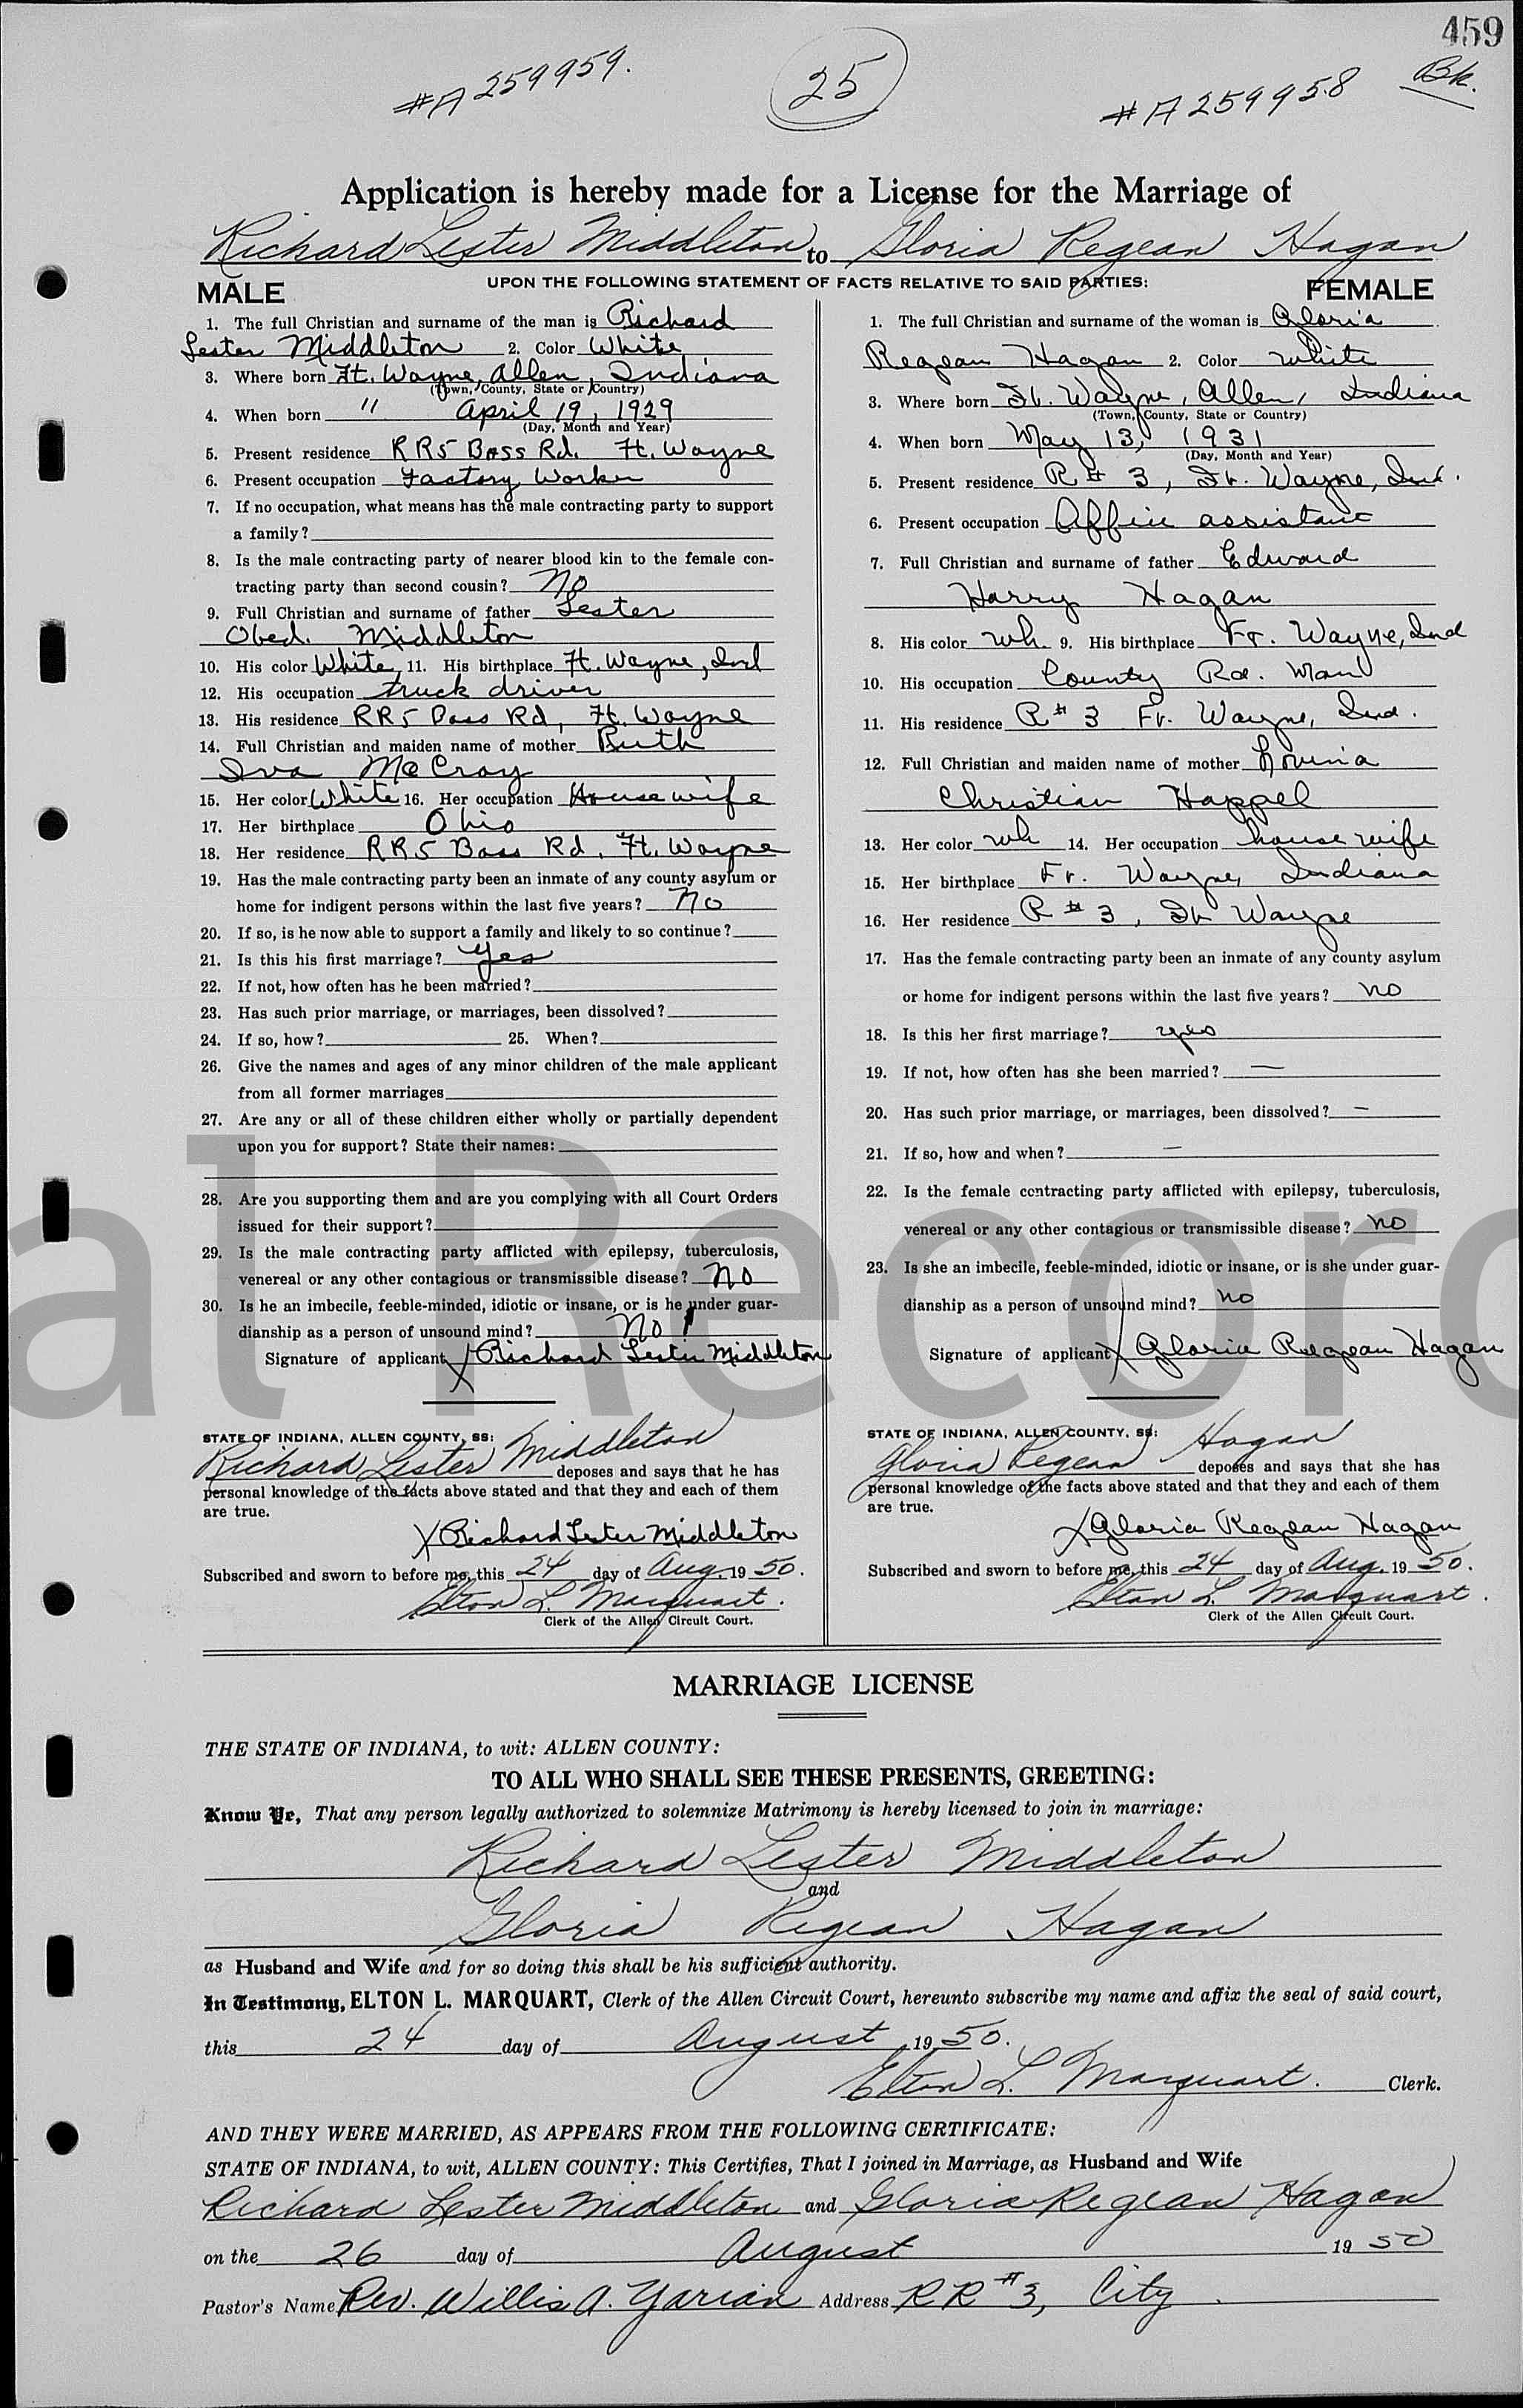 459
#A259959.
25
#A259958
Bk.
Application is hereby made for a License for the Marriage of
Richard Lester Middleton to Gloria Regean Hagan
UPON THE FOLLOWING STATEMENT OF FACTS RELATIVE TO SAID PARTIES:
MALE
1. The full Christian and surname of the man is Richard
Lester Middleton 2. Color White
3. Where born Ft. Wayne, Allen, Indiana
(Town, County, State or Country)
4. When born " April 19, 1929
(Day, Month and Year)
5. Present residence RR5 Bass Rd. Ft. Wayne
6. Present occupation Factory Worker
7. If no occupation, what means has the male contracting party to support
a family?
8. Is the male contracting party of nearer blood kin to the female con-
tracting party than second cousin? No
9. Full Christian and surname of father Lester
Obed. Middleton
10. His color White 11. His birthplace Ft. Wayne, Ind
12. His occupation truck driver
13. His residence RR5 Bass Rd, Ft. Wayne
14. Full Christian and maiden name of mother Ruth
Iva McCray
15. Her color White 16. Her occupation Housewife
17. Her birthplace Ohio
18. Her residence RR5 Bass Rd. Ft. Wayne
19. Has the male contracting party been an inmate of any county asylum or
home for indigent persons within the last five years? No
20. If so, is he now able to support a family and likely to so continue?
21. Is this his first marriage? Yes
22. If not, how often has he been married?
23. Has such prior marriage, or marriages, been dissolved?
24. If so, how? 25. When?
26. Give the names and ages of any minor children of the male applicant
from all former marriages
27. Are any or all of these children either wholly or partially dependent
upon you for support? State their names:
28. Are you supporting them and are you complying with all Court Orders
issued for their support?
29. Is the male contracting party afflicted with epilepsy, tuberculosis,
venereal or any other contagious or transmissible disease? No
30. Is he an imbecile, feeble-minded, idiotic or insane, or is he under guar-
dianship as a person of unsound mind? No
Signature of applicant X Richard Lester Middleton
STATE OF INDIANA, ALLEN COUNTY, SS:
Richard Lester Middleton deposes and says that he has
personal knowledge of the facts above stated and that they and each of them
are true.
X Richard Lester Middleton
Subscribed and sworn to before me, this 24 day of Aug. 19 50.
Elton L. Marquart.
Clerk of the Allen Circuit Court.
FEMALE
1. The full Christian and surname of the woman is Gloria
Regean Hagan 2. Color White
3. Where born Ft. Wayne, Allen, Indiana
(Town, County, State or Country)
4. When born May 13, 1931
(Day, Month and Year)
5. Present residence R# 3, Ft. Wayne, Ind.
6. Present occupation Office assistant
7. Full Christian and surname of father Edward
Harry Hagan
8. His color wh. 9. His birthplace Ft. Wayne, Ind
10. His occupation County Rd. Man
11. His residence R# 3 Ft. Wayne, Ind.
12. Full Christian and maiden name of mother Lovina
Christian Happel
13. Her color wh 14. Her occupation housewife
15. Her birthplace Ft. Wayne, Indiana
16. Her residence R# 3, Ft Wayne
17. Has the female contracting party been an inmate of any county asylum
or home for indigent persons within the last five years? no
18. Is this her first marriage? yes
19. If not, how often has she been married? —
20. Has such prior marriage, or marriages, been dissolved? —
21. If so, how and when? —
22. Is the female contracting party afflicted with epilepsy, tuberculosis,
venereal or any other contagious or transmissible disease? no
23. Is she an imbecile, feeble-minded, idiotic or insane, or is she under guar-
dianship as a person of unsound mind? no
Signature of applicant X Gloria Regean Hagan
STATE OF INDIANA, ALLEN COUNTY, SS:
Gloria Regean Hagan deposes and says that she has
personal knowledge of the facts above stated and that they and each of them
are true.
X Gloria Regean Hagan
Subscribed and sworn to before me, this 24 day of Aug. 19 50.
Elton L. Marquart.
Clerk of the Allen Circuit Court.
al Record
MARRIAGE LICENSE
THE STATE OF INDIANA, to wit: ALLEN COUNTY:
TO ALL WHO SHALL SEE THESE PRESENTS, GREETING:
Know Ye, That any person legally authorized to solemnize Matrimony is hereby licensed to join in marriage:
Richard Lester Middleton
and
Gloria Regean Hagan
as Husband and Wife and for so doing this shall be his sufficient authority.
In Testimony, ELTON L. MARQUART, Clerk of the Allen Circuit Court, hereunto subscribe my name and affix the seal of said court,
this 24 day of August, 19 50.
Elton L. Marquart. Clerk.
AND THEY WERE MARRIED, AS APPEARS FROM THE FOLLOWING CERTIFICATE:
STATE OF INDIANA, to wit, ALLEN COUNTY: This Certifies, That I joined in Marriage, as Husband and Wife
Richard Lester Middleton and Gloria Regean Hagan
on the 26 day of August 19 50
Pastor's Name Rev. Willis A. Yarian Address RR #3, City.